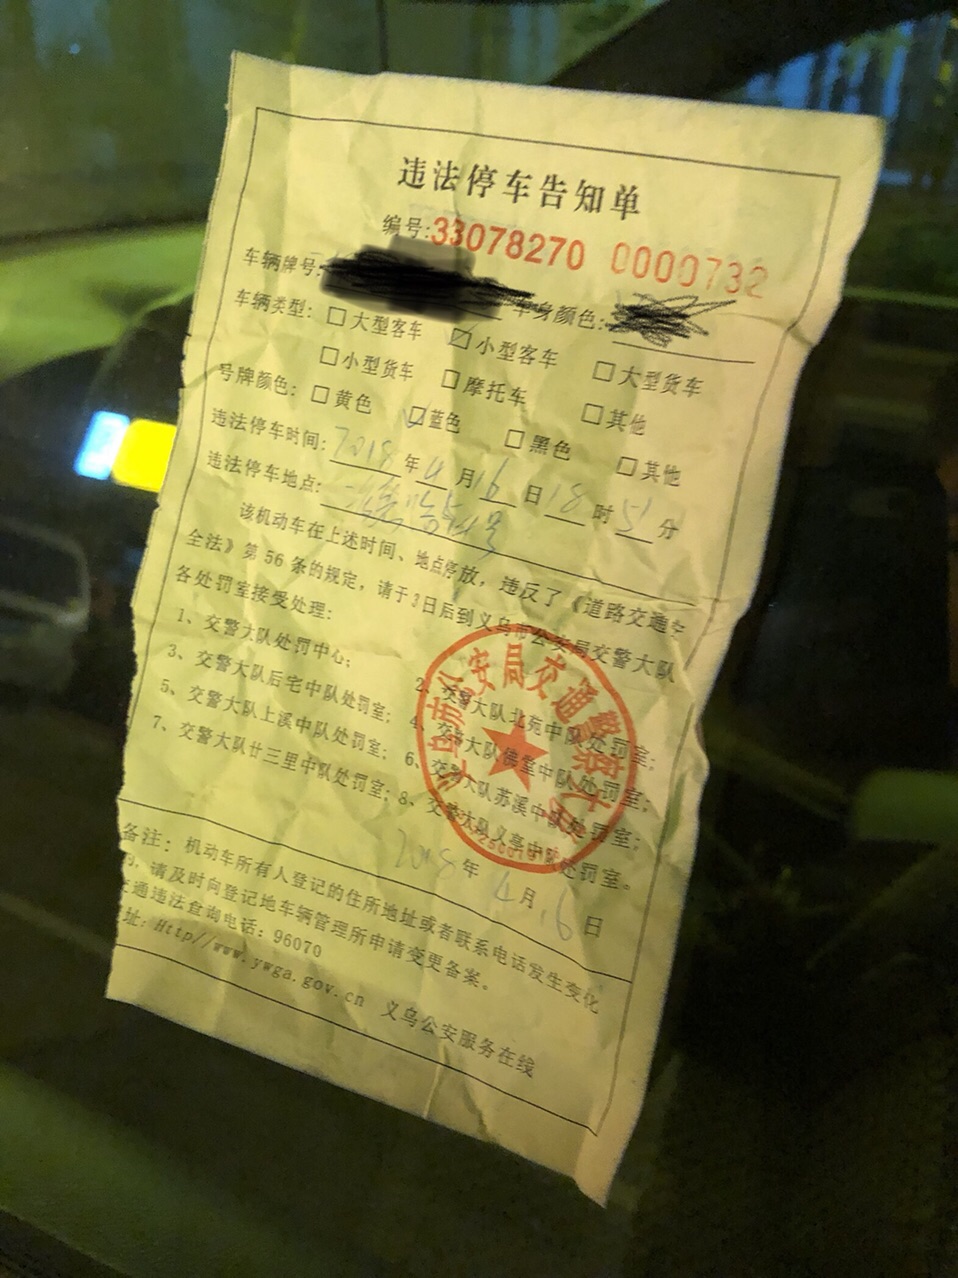 违法停车告知单
编号:33078270 0000732
车辆牌号: 车身颜色:
车辆类型: □大型客车 ☑小型客车 □大型货车
□小型货车 □摩托车 □其他
号牌颜色: □黄色 ☑蓝色 □黑色 □其他
违法停车时间: 2018年4月16日18时51分
违法停车地点:
该机动车在上述时间、地点停放，违反了《道路交通安
全法》第56条的规定，请于3日后到义乌市公安局交警大队
各处罚室接受处理:
1、交警大队处罚中心; 2、交警大队北苑中队处罚室;
3、交警大队后宅中队处罚室; 4、交警大队佛堂中队处罚室;
5、交警大队上溪中队处罚室; 6、交警大队苏溪中队处罚室;
7、交警大队廿三里中队处罚室; 8、交警大队义亭中队处罚室。
义乌市公安局交通警察大队
2018年4月16日
备注: 机动车所有人登记的住所地址或者联系电话发生变化
的，请及时向登记地车辆管理所申请变更备案。
交通违法查询电话: 96070
址: Http//www.ywga.gov.cn 义乌公安服务在线